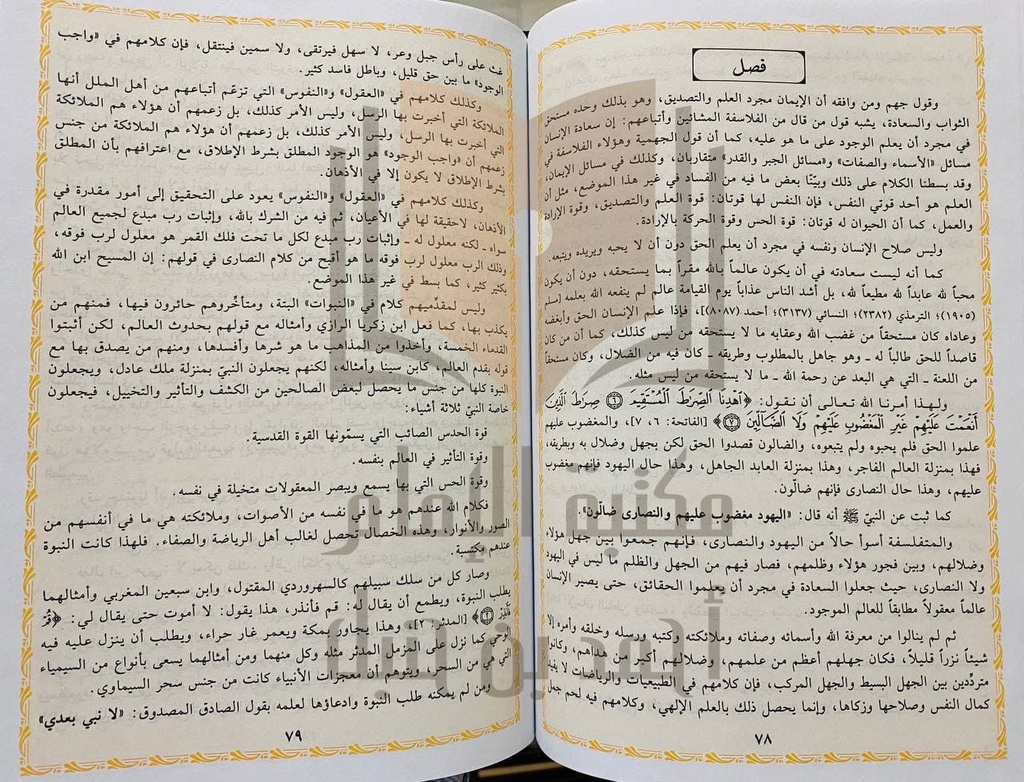 فصل
وقول جهم ومن وافقه أن الإيمان مجرد العلم والتصديق، وهو بذلك وحده مستحق
الثواب والسعادة، يشبه قول من قال من الفلاسفة المشائين وأتباعهم: إن سعادة الإنسان
في مجرد أن يعلم الوجود على ما هو عليه، كما أن قول الجهمية وهؤلاء الفلاسفة في
مسائل «الأسماء والصفات» و«مسائل الجبر والقدر» متقاربان، وكذلك في مسائل الإيمان،
وقد بسطنا الكلام على ذلك وبيّنّا بعض ما فيه من الفساد في غير هذا الموضع، مثل أن
العلم هو أحد قوتي النفس، فإن النفس لها قوتان: قوة العلم والتصديق، وقوة الإرادة
والعمل، كما أن الحيوان له قوتان: قوة الحس وقوة الحركة بالإرادة.
وليس صلاح الإنسان ونفسه في مجرد أن يعلم الحق دون أن لا يحبه ويريده ويتبعه.
كما أنه ليست سعادته في أن يكون عالماً بالله مقراً بما يستحقه، دون أن يكون
محباً لله عابداً لله مطيعاً لله، بل أشد الناس عذاباً يوم القيامة عالم لم ينفعه الله بعلمه [مسلم
(١٩٠٥)؛ الترمذي (٢٣٨٢)؛ النسائي (٣١٣٧)؛ أحمد (٨٠٨٧)]، فإذا علم الإنسان الحق وأبغضه
وعاداه كان مستحقاً من غضب الله وعقابه ما لا يستحقه من ليس كذلك، كما أن من كان
قاصداً للحق طالباً له ـ وهو جاهل بالمطلوب وطريقه ـ كان فيه من الضلال، وكان مستحقاً
من اللعنة ـ التي هي البعد عن رحمة الله ـ ما لا يستحقه من ليس مثله.
ولهذا أمرنا الله تعالى أن نقول: ﴿اهْدِنَا الصِّرَاطَ الْمُسْتَقِيمَ ۝٦ صِرَاطَ الَّذِينَ
أَنْعَمْتَ عَلَيْهِمْ غَيْرِ الْمَغْضُوبِ عَلَيْهِمْ وَلَا الضَّالِّينَ ۝٧﴾ [الفاتحة: ٦، ٧]، والمغضوب عليهم
علموا الحق فلم يحبوه ولم يتبعوه، والضالون قصدوا الحق لكن بجهل وضلال به وبطريقه،
فهذا بمنزلة العالم الفاجر، وهذا بمنزلة العابد الجاهل، وهذا حال اليهود فإنهم مغضوب
عليهم، وهذا حال النصارى فإنهم ضالّون.
كما ثبت عن النبيّ ﷺ أنه قال: «اليهود مغضوب عليهم والنصارى ضالّون».
والمتفلسفة أسوأ حالاً من اليهود والنصارى، فإنهم جمعوا بين جهل هؤلاء
وضلالهم، وبين فجور هؤلاء وظلمهم، فصار فيهم من الجهل والظلم ما ليس في اليهود
ولا النصارى، حيث جعلوا السعادة في مجرد أن يعلموا الحقائق، حتى يصير الإنسان
عالماً معقولاً مطابقاً للعالم الموجود.
ثم لم ينالوا من معرفة الله وأسمائه وصفاته وملائكته وكتبه ورسله وخلقه وأمره إلا
شيئاً نزراً قليلاً، فكان جهلهم أعظم من علمهم، وضلالهم أكبر من هداهم، وكانوا
متردّدين بين الجهل البسيط والجهل المركب، فإن كلامهم في الطبيعيات والرياضات لا يفيد
كمال النفس وصلاحها وزكاها، وإنما يحصل ذلك بالعلم الإلهي، وكلامهم فيه لحم جمل
٧٨
غث على رأس جبل وعر، لا سهل فيرتقى، ولا سمين فينتقل، فإن كلامهم في «واجب
الوجود» ما بين حق قليل، وباطل فاسد كثير.
وكذلك كلامهم في «العقول» و«النفوس» التي تزعم أتباعهم من أهل الملل أنها
الملائكة التي أخبرت بها الرسل، وليس الأمر كذلك، بل زعمهم أن هؤلاء هم الملائكة
التي أخبرت بها الرسل، وليس الأمر كذلك، بل زعمهم أن هؤلاء هم الملائكة من جنس
زعمهم أن «واجب الوجود» هو الوجود المطلق بشرط الإطلاق، مع اعترافهم بأن المطلق
بشرط الإطلاق لا يكون إلا في الأذهان.
وكذلك كلامهم في «العقول» و«النفوس» يعود على التحقيق إلى أمور مقدرة في
الأذهان، لا حقيقة لها في الأعيان، ثم فيه من الشرك بالله، وإثبات رب مبدع لجميع العالم
سواه ـ لكنه معلول له ـ وإثبات رب مبدع لكل ما تحت فلك القمر هو معلول لرب فوقه،
وذلك الرب معلول لرب فوقه ما هو أقبح من كلام النصارى في قولهم: إن المسيح ابن الله
بكثير كثير، كما بسط في غير هذا الموضع.
وليس لمقدّميهم كلام في «النبوات» البتة، ومتأخّروهم حائرون فيها، فمنهم من
يكذب بها، كما فعل ابن زكريا الرازي وأمثاله مع قولهم بحدوث العالم، لكن أثبتوا
القدماء الخمسة، وأخذوا من المذاهب ما هو شرها وأفسدها، ومنهم من يصدق بها مع
قوله بقدم العالم، كابن سينا وأمثاله، لكنهم يجعلون النبيّ بمنزلة ملك عادل، ويجعلون
النبوة كلها من جنس ما يحصل لبعض الصالحين من الكشف والتأثير والتخييل، فيجعلون
خاصة النبيّ ثلاثة أشياء:
قوة الحدس الصائب التي يسمّونها القوة القدسية.
وقوة التأثير في العالم بنفسه.
وقوة الحس التي بها يسمع ويبصر المعقولات متخيلة في نفسه.
فكلام الله عندهم هو ما في نفسه من الأصوات، وملائكته هي ما في أنفسهم من
الصور والأنوار، وهذه الخصال تحصل لغالب أهل الرياضة والصفاء. فلهذا كانت النبوة
عندهم مكتسبة.
وصار كل من سلك سبيلهم كالسهروردي المقتول، وابن سبعين المغربي وأمثالهما
يطلب النبوة، ويطمع أن يقال له: قم فأنذر، هذا يقول: لا أموت حتى يقال لي: ﴿قُمْ
فَأَنذِرْ ۝٢﴾ [المدثر: ٢]، وهذا يجاور بمكة ويعمر غار حراء، ويطلب أن ينزل عليه فيه
الوحي كما نزل على المزمل المدثر مثله وكل منهما ومن أمثالهما يسعى بأنواع من السيمياء
التي هي من السحر، ويتوهم أن معجزات الأنبياء كانت من جنس سحر السيماوي.
ومن لم يمكنه طلب النبوة وادعاؤها لعلمه بقول الصادق المصدوق: «لا نبي بعدي»
٧٩
مكتبة الإمام
أحمد بن حنبل